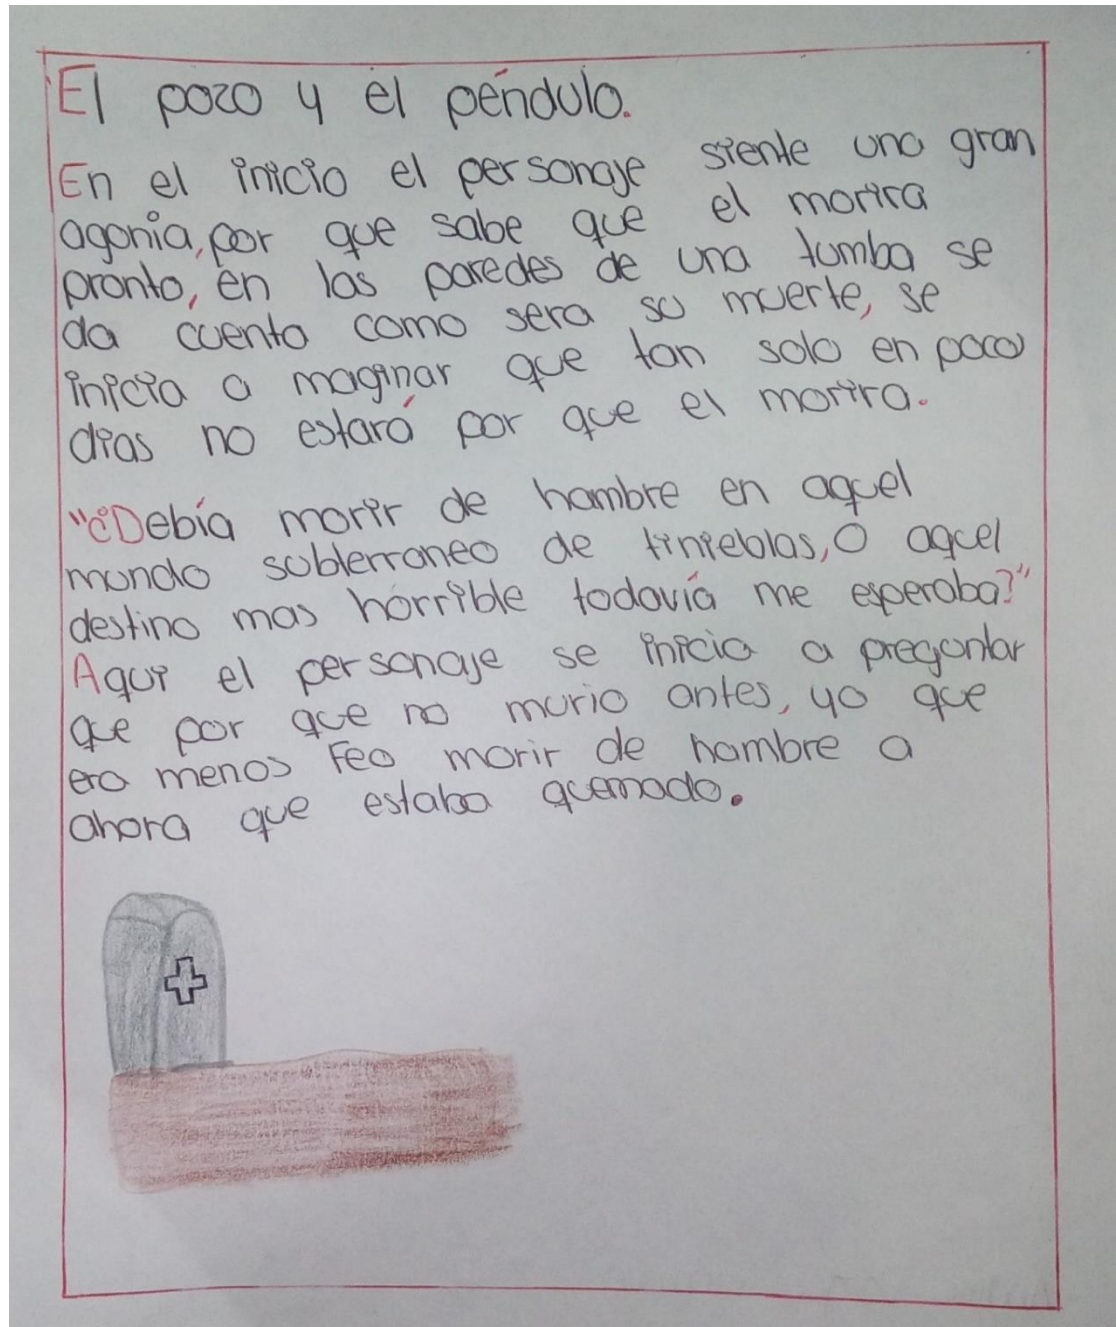 El pozo y el péndulo.
En el inicio el personaje siente una gran
agonia, por que sabe que el morira
pronto, en las paredes de una tumba se
da cuenta como sera su muerte, se
inicia a maginar que tan solo en poco
dias no estará por que el morira.
"¿Debía morir de hambre en aquel
mundo subterraneo de tinieblas, O aquel
destino mas horrible todavía me esperaba?"
Aqui el personaje se inicia a preguntar
que por que no murio antes, ya que
era menos Feo morir de hambre a
ahora que estaba quemado.